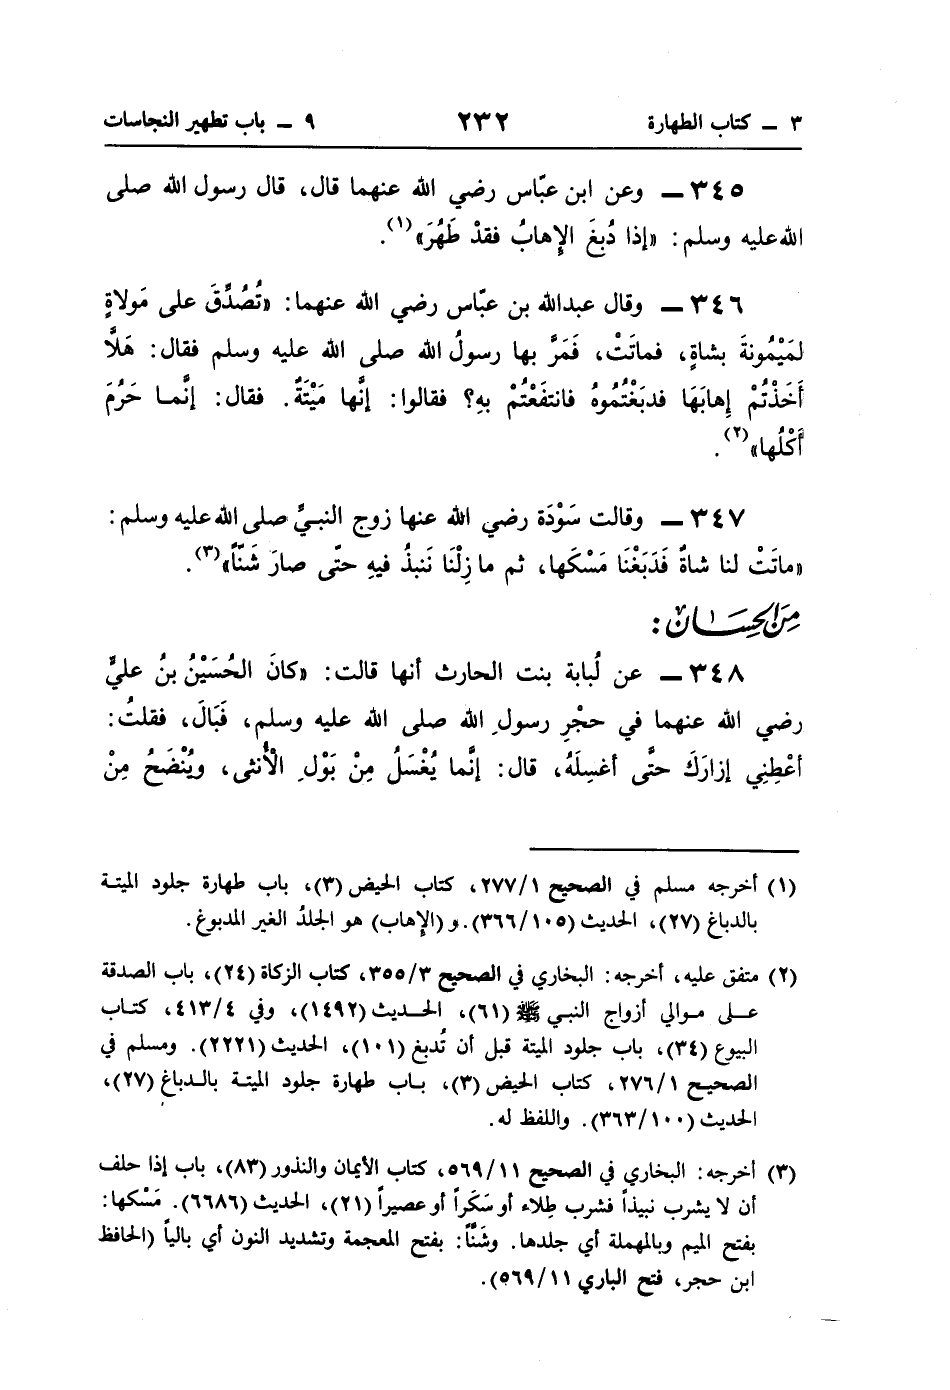 ٣ ــ كتاب الطهارة ٢٣٢ ٩ ــ باب تطهير النجاسات
٣٤٥ ــ وعن ابن عبّاس رضي الله عنهما قال، قال رسول الله صلى
الله عليه وسلم: «إذا دُبِغَ الإِهابُ فقدْ طَهُرَ»(١).
٣٤٦ ــ وقال عبدالله بن عبّاس رضي الله عنهما: «تُصُدِّقَ على مَولاةٍ
لمَيْمُونةَ بشاةٍ، فماتَتْ، فَمَرَّ بها رسولُ الله صلى الله عليه وسلم فقال: هَلَّا
أَخَذْتُمْ إهابَهَا فدبَغْتُموهُ فانتفَعْتُم بهِ؟ فقالوا: إنَّها مَيْتَةٌ. فقال: إنَّما حَرُمَ
أَكْلُها»(٢).
٣٤٧ ــ وقالت سَوْدَة رضي الله عنها زوج النبيِّ صلى الله عليه وسلم:
«ماتَتْ لنا شاةٌ فَدَبَغْنَا مَسْكَها، ثم ما زِلْنَا نَنبذُ فيهِ حتّى صارَ شَنّاً»(٣).
مِنَ الحِسَان:
٣٤٨ ــ عن لُبابة بنت الحارث أنها قالت: «كانَ الحُسَيْنُ بنُ عليٍّ
رضي الله عنهما في حجْرِ رسولِ الله صلى الله عليه وسلم، فَبَالَ، فقلتُ:
أعْطِنِي إزارَكَ حتَّى أغسِلَهُ، قال: إنَّما يُغْسَلُ مِنْ بَوْلِ الأُنثى، ويُنْضَحُ مِنْ
(١) أخرجه مسلم في الصحيح ٢٧٧/١، كتاب الحيض (٣)، باب طهارة جلود الميتة
بالدباغ (٢٧)، الحديث (٣٦٦/١٠٥). و (الإهاب) هو الجلدُ الغير المدبوغ.
(٢) متفق عليه، أخرجه: البخاري في الصحيح ٣٥٥/٣، كتاب الزكاة (٢٤)، باب الصدقة
على موالي أزواج النبي ﷺ (٦١)، الحديث (١٤٩٢)، وفي ٤١٣/٤، كتاب
البيوع (٣٤)، باب جلود الميتة قبل أن تُدبغ (١٠١)، الحديث (٢٢٢١). ومسلم في
الصحيح ٢٧٦/١، كتاب الحيض (٣)، باب طهارة جلود الميتة بالدباغ (٢٧)،
الحديث (٣٦٣/١٠٠). واللفظ له.
(٣) أخرجه: البخاري في الصحيح ٥٦٩/١١، كتاب الأيمان والنذور (٨٣)، باب إذا حلف
أن لا يشرب نبيذاً فشرب طِلاء أو سَكَراً أو عصيراً (٢١)، الحديث (٦٦٨٦). مَسْكها:
بفتح الميم وبالمهملة أي جلدها. وشَنَّاً: بفتح المعجمة وتشديد النون أي بالياً (الحافظ
ابن حجر، فتح الباري ٥٦٩/١١).